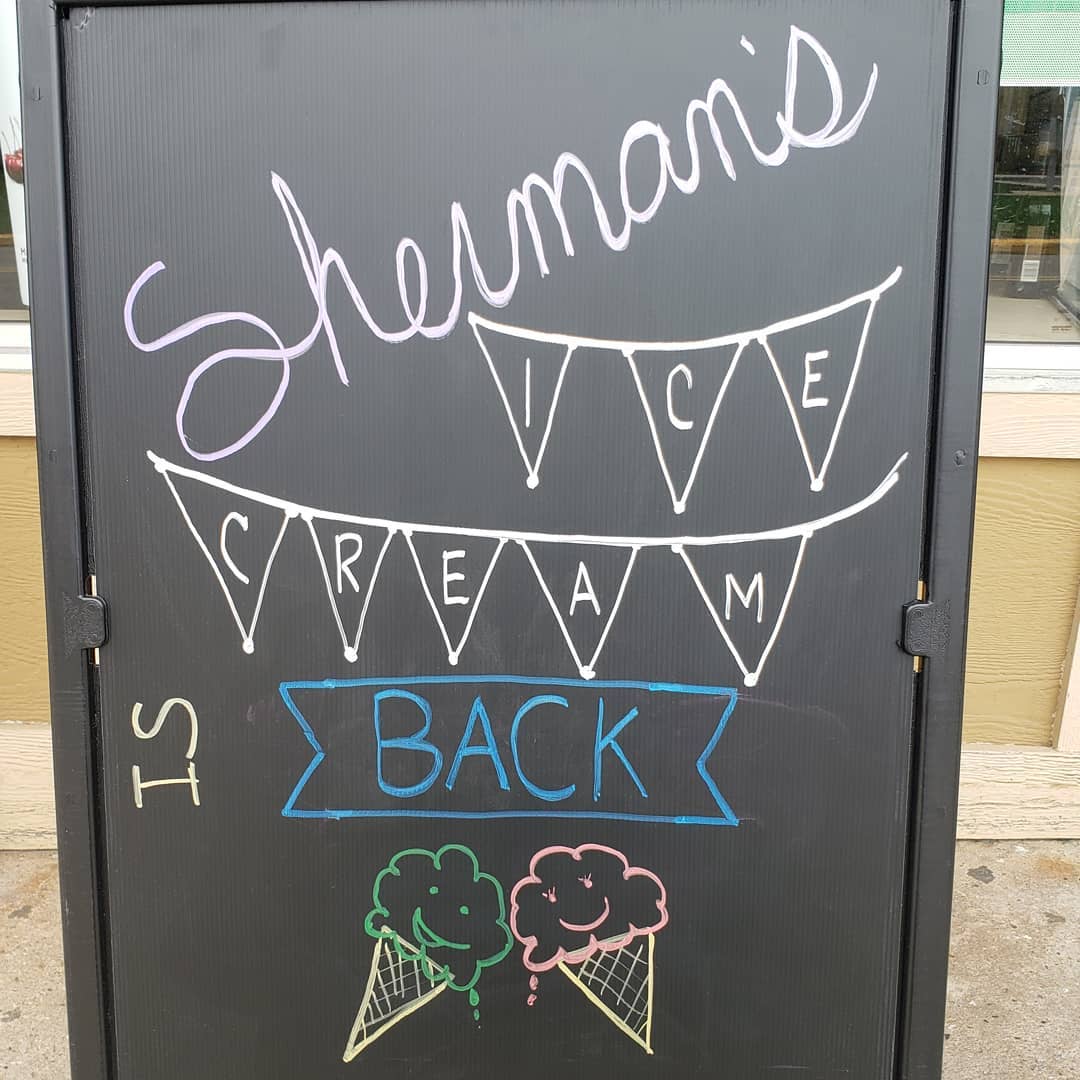 Sherman's
ICE
CREAM
IS
BACK